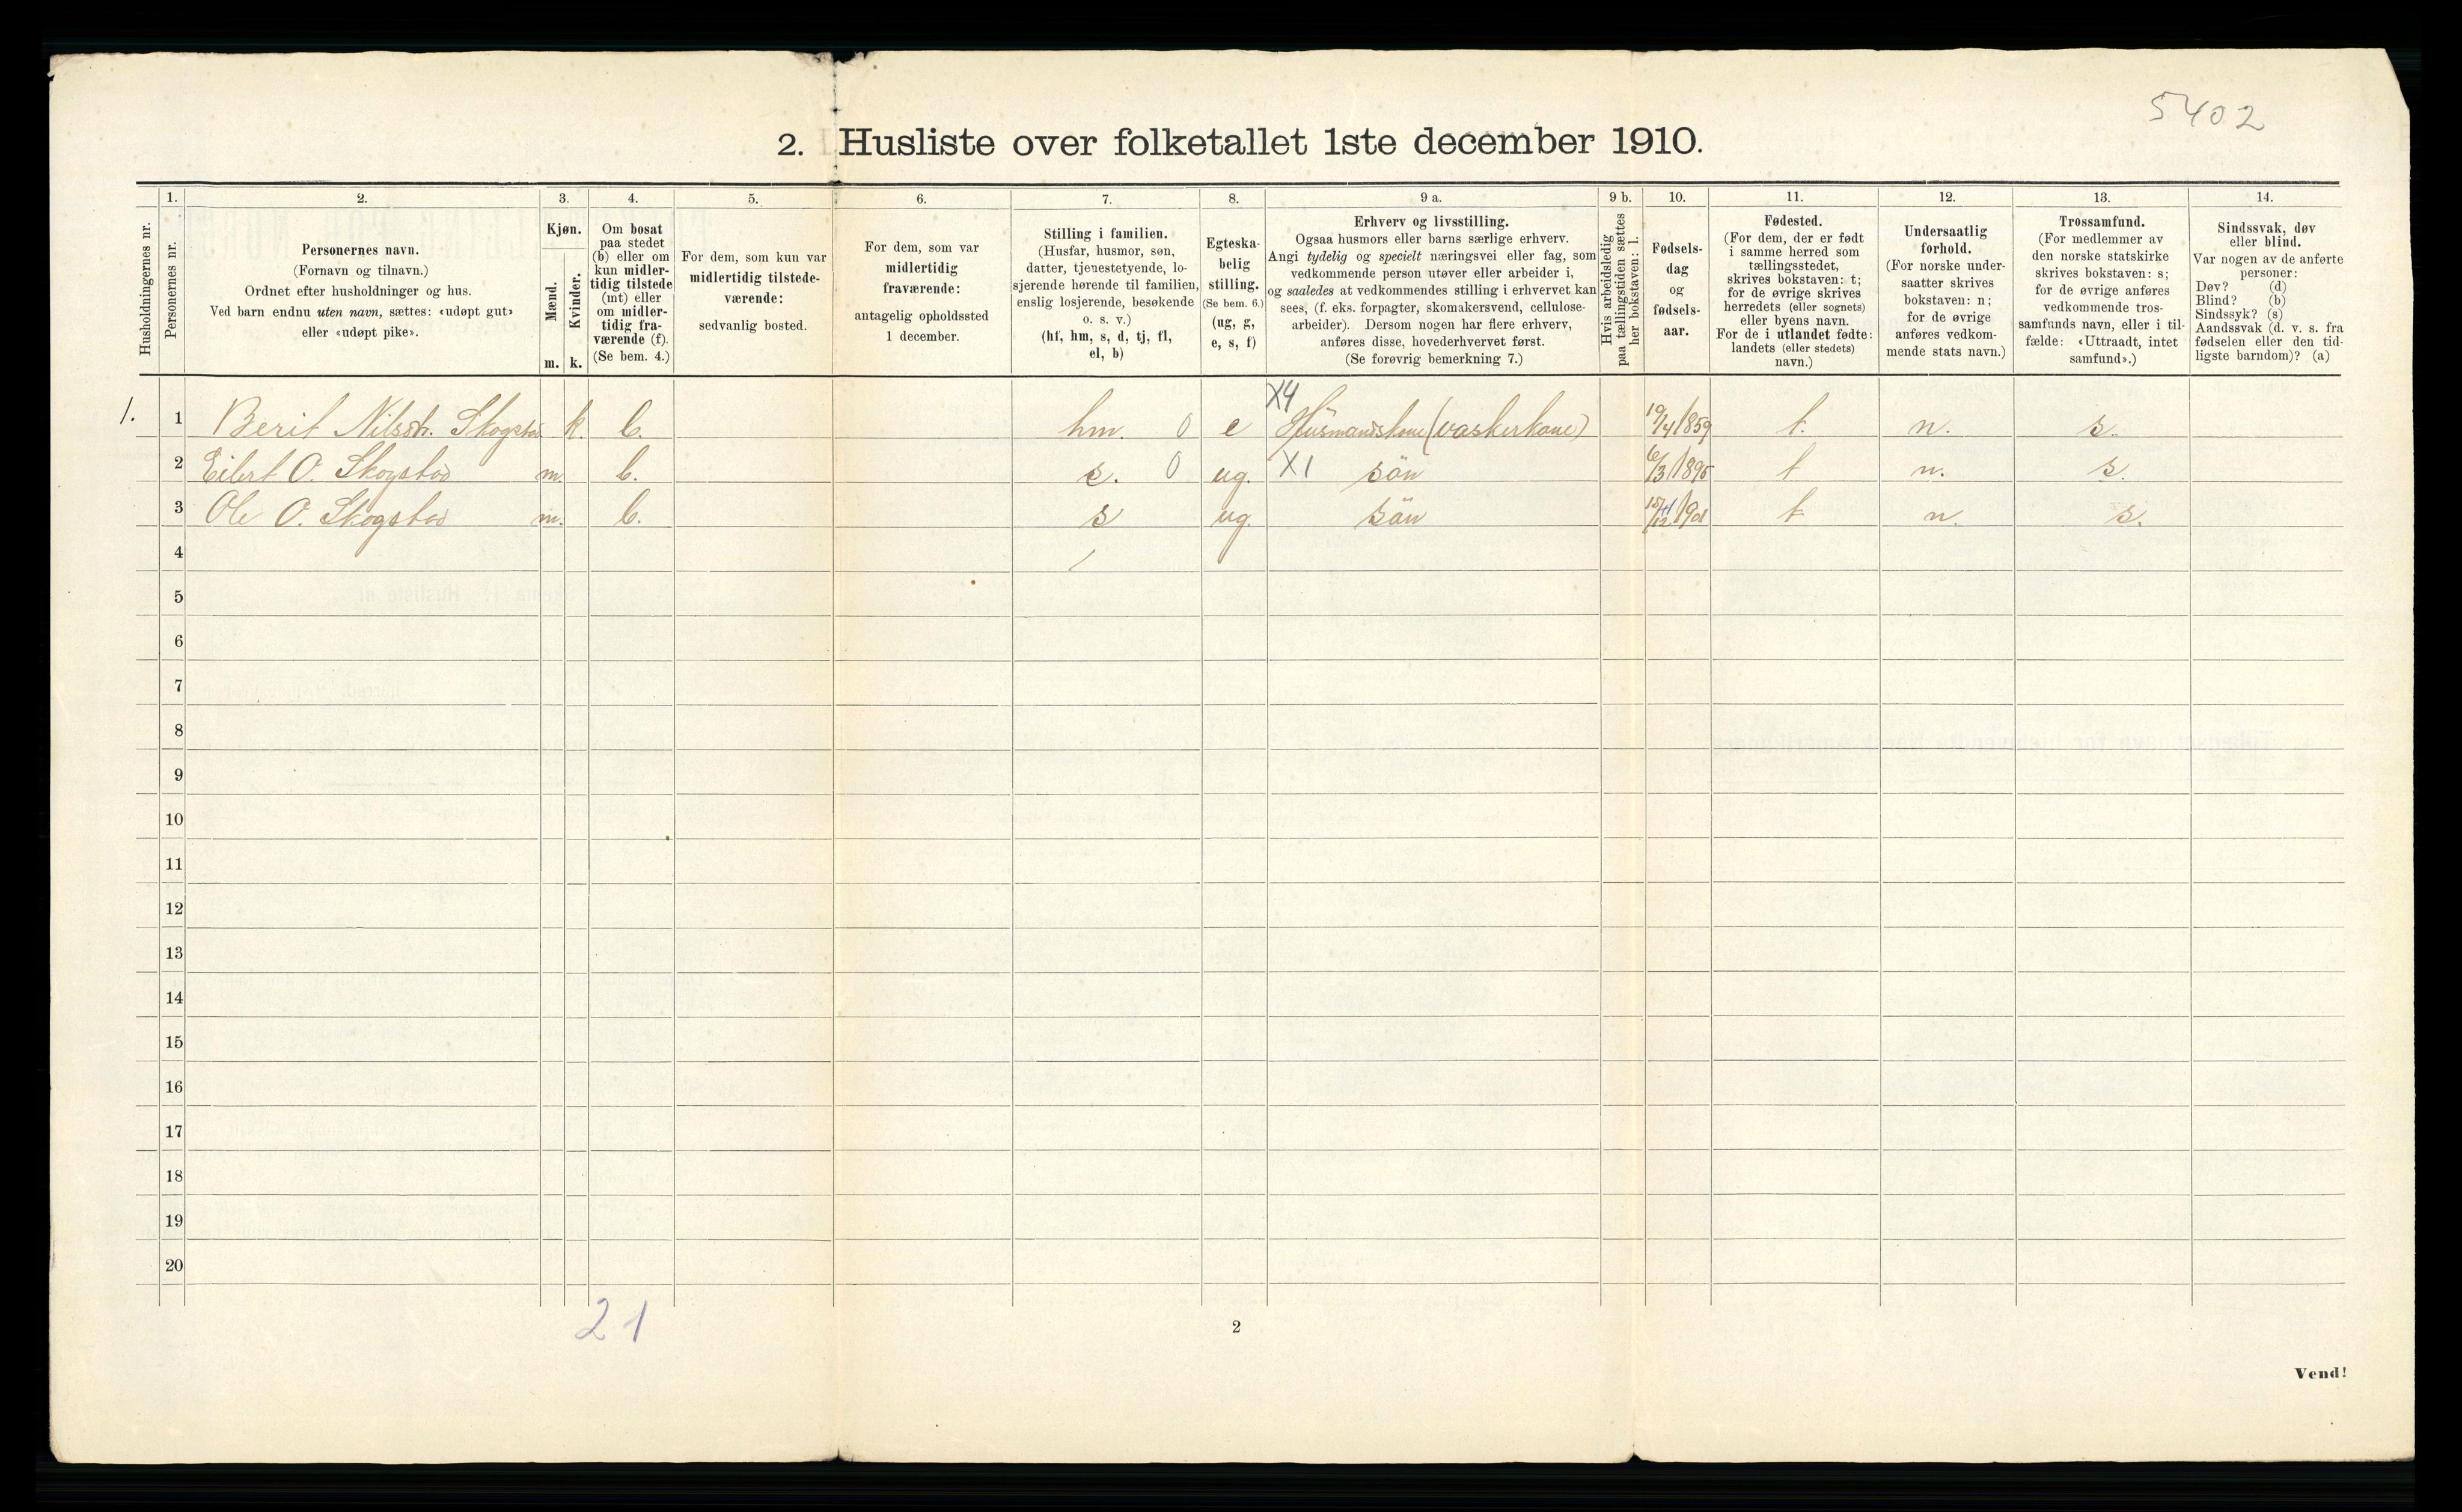 5402
2. Husliste over folketallet 1ste december 1910.
Husholdningernes nr.
1.
Personernes nr.
2.
Personernes navn.
(Fornavn og tilnavn.)
Ordnet efter husholdninger og hus.
Ved barn endnu uten navn, sættes: «udøpt gut»
eller «udøpt pike».
3.
Kjøn.
Mænd.
m.
Kvinder.
k.
4.
Om bosat
paa stedet
(b) eller om
kun midler-
tidig tilstede
(mt) eller
om midler-
tidig fra-
værende (f).
(Se bem. 4.)
5.
For dem, som kun var
midlertidig tilstede-
værende:
sedvanlig bosted.
6.
For dem, som var
midlertidig
fraværende:
antagelig opholdssted
1 december.
7.
Stilling i familien.
(Husfar, husmor, søn,
datter, tjenestetyende, lo-
sjerende hørende til familien,
enslig losjerende, besøkende
o. s. v.)
(hf, hm, s, d, tj, fl,
el, b)
8.
Egteska-
belig
stilling.
(Se bem. 6.)
(ug, g,
e, s, f)
9 a.
Erhverv og livsstilling.
Ogsaa husmors eller barns særlige erhverv.
Angi tydelig og specielt næringsvei eller fag, som
vedkommende person utøver eller arbeider i,
og saaledes at vedkommendes stilling i erhvervet kan
sees, (f. eks. forpagter, skomakersvend, cellulose-
arbeider). Dersom nogen har flere erhverv,
anføres disse, hovederhvervet først.
(Se forøvrig bemerkning 7.)
9 b.
Hvis arbeidsledig
paa tællingstiden sættes
her bokstaven: l.
10.
Fødsels-
dag
og
fødsels-
aar.
11.
Fødested.
(For dem, der er født
i samme herred som
tællingsstedet,
skrives bokstaven: t;
for de øvrige skrives
herredets (eller sognets)
eller byens navn.
For de i utlandet fødte:
landets (eller stedets)
navn.)
12.
Undersaatlig
forhold.
(For norske under-
saatter skrives
bokstaven: n;
for de øvrige
anføres vedkom-
mende stats navn.)
13.
Trossamfund.
(For medlemmer av
den norske statskirke
skrives bokstaven: s;
for de øvrige anføres
vedkommende tros-
samfunds navn, eller i til-
fælde: «Uttraadt, intet
samfund».)
14.
Sindssvak, døv
eller blind.
Var nogen av de anførte
personer:
Døv? (d)
Blind? (b)
Sindssyk? (s)
Aandssvak (d. v. s. fra
fødselen eller den tid-
ligste barndom)? (a)
X4
1. 1 Berit Nilsdtr. k. b. hm. 0 e Husmandskone (vaskerkone) t. n. s.
2 Eilert O. Skogstad m. b. s. 0 ug. X1 sön t n. s.
3 Ole O. Skogstad m. b. s ug. sön t n. s.
4
5
6
7
8
9
10
11
12
13
14
15
16
17
18
19
20
21
2
Vend!